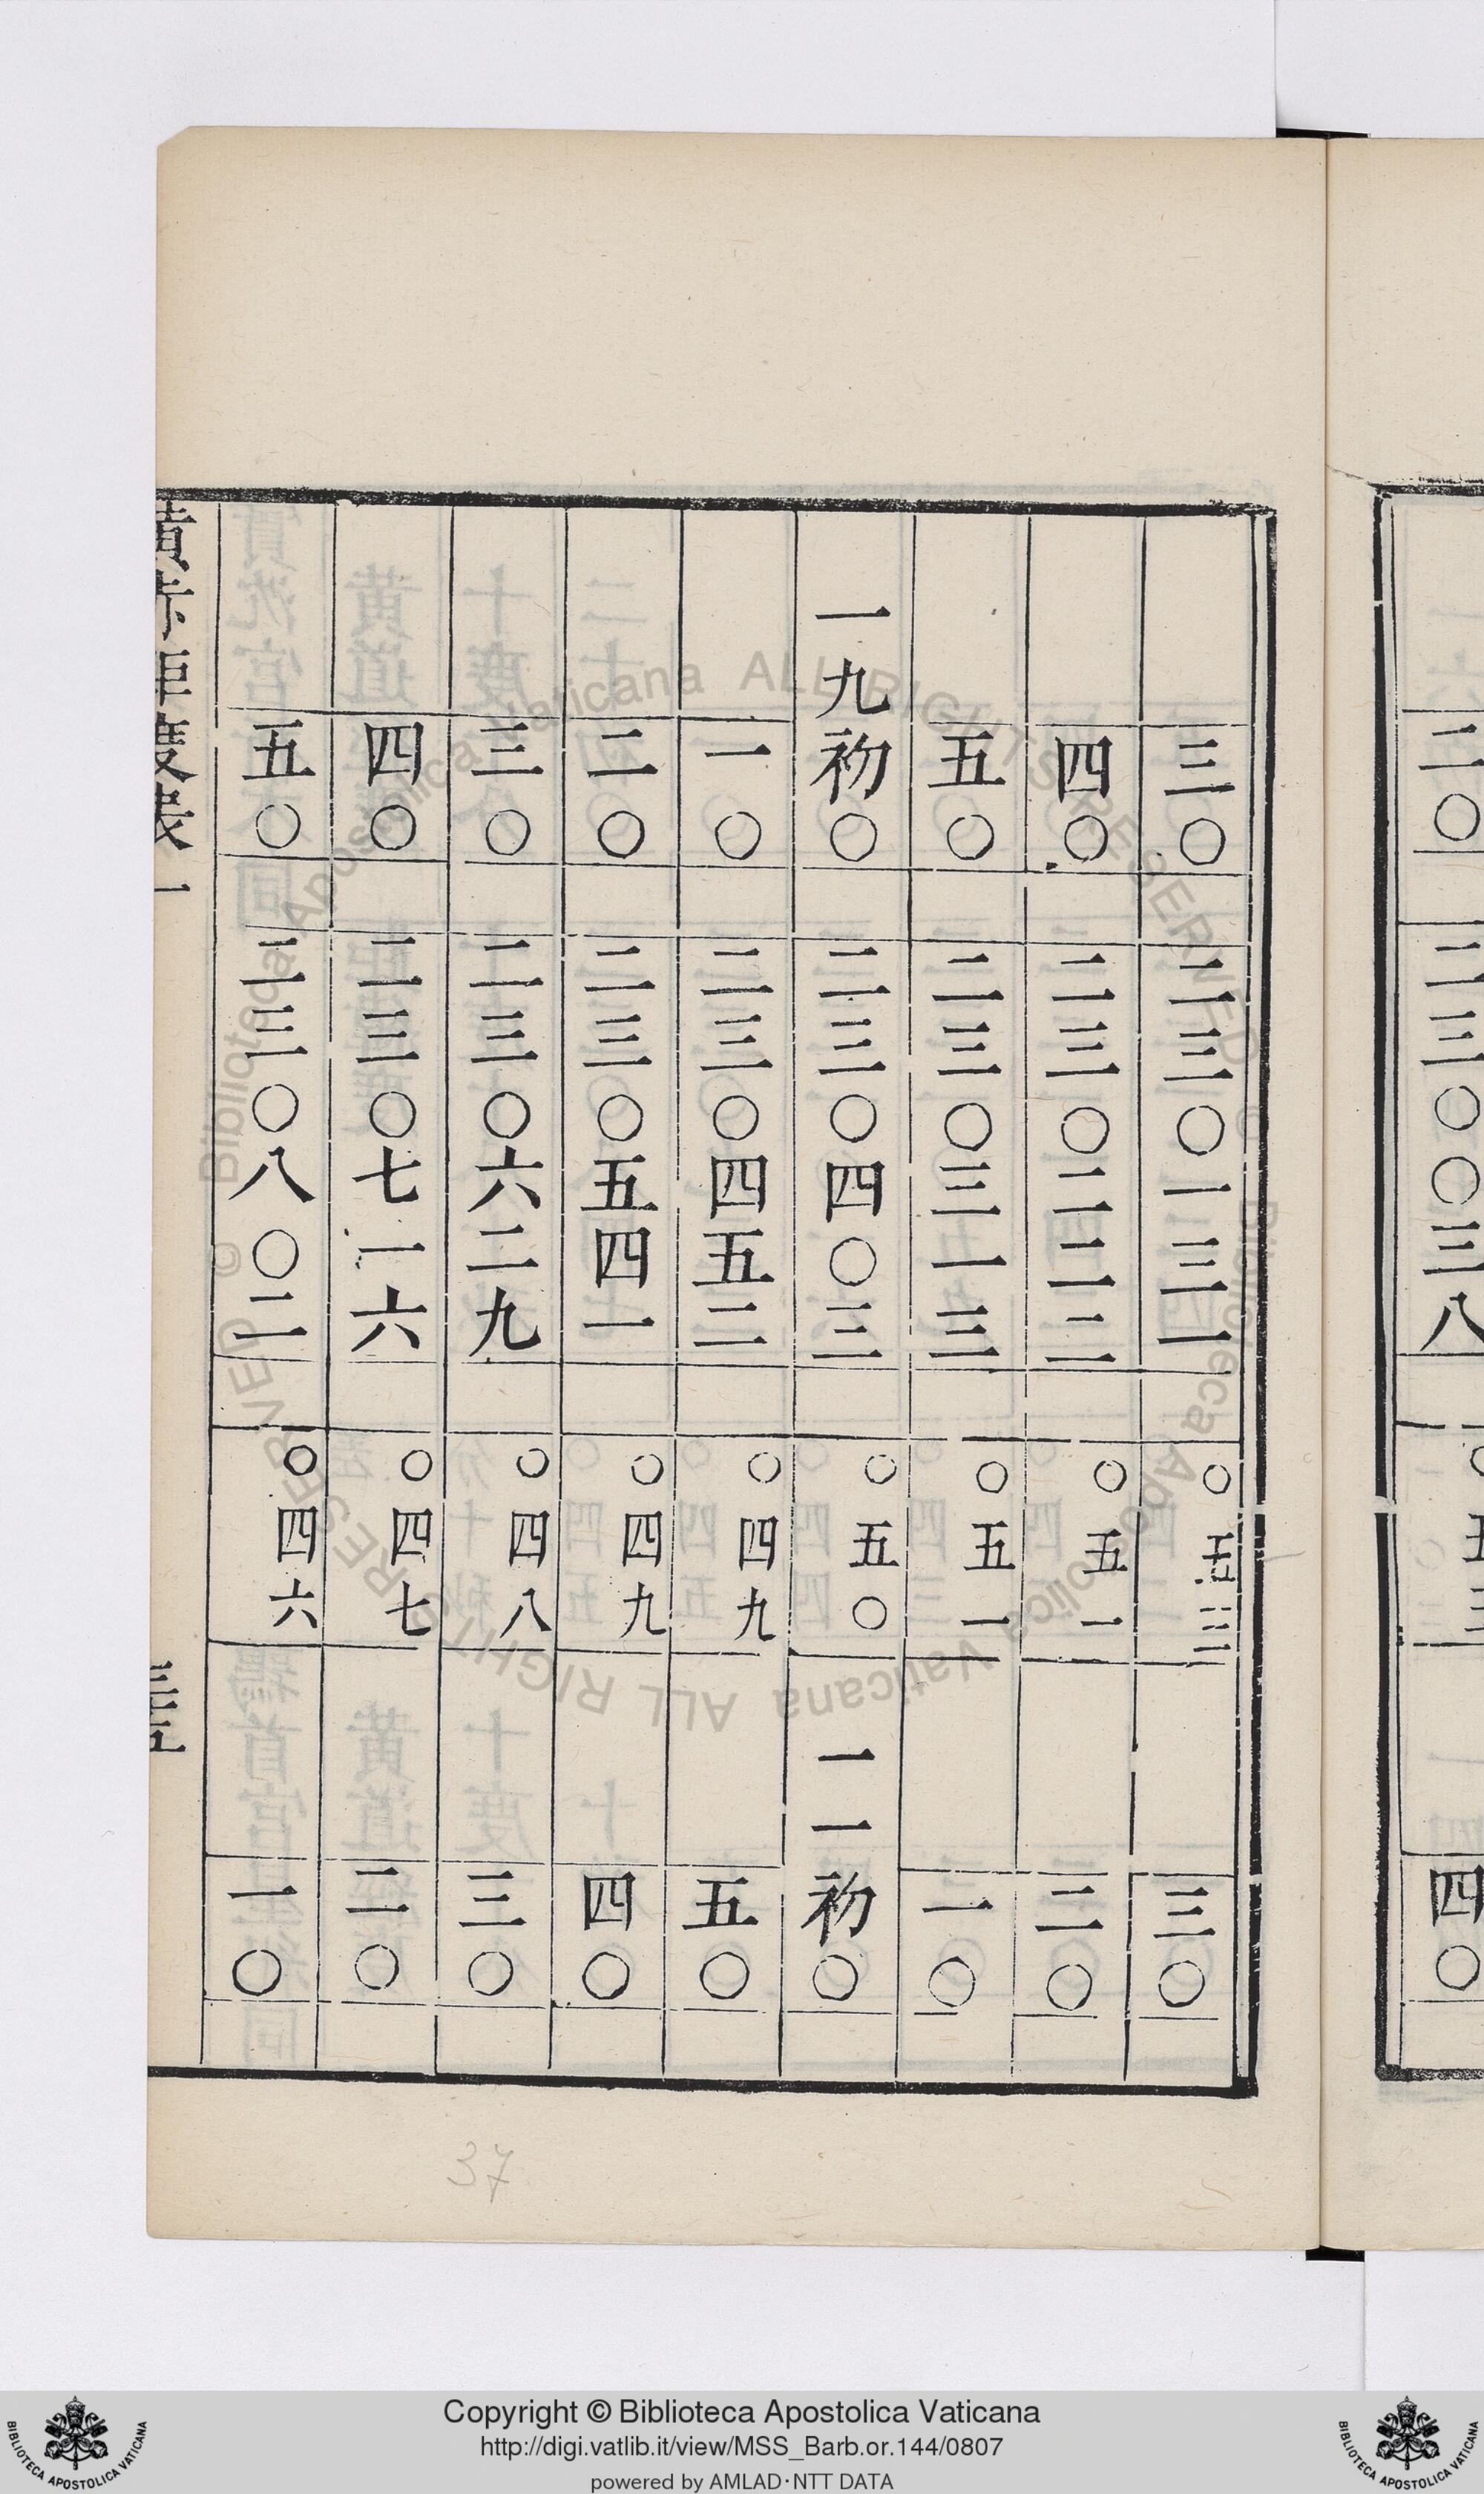 二〇 二三〇〇三八 〇五三 四〇
三〇 二三〇一三一 〇五三 三〇
四〇 二三〇二二二 〇五一 二〇
五〇 二三〇三一三 〇五一 一〇
一九 初〇 二三〇四〇三 〇五〇 一一 初〇
一〇 二三〇四五二 〇四九 五〇
二〇 二三〇五四一 〇四九 四〇
三〇 二三〇六二九 〇四八 三〇
四〇 二三〇七一六 〇四七 二〇
五〇 二三〇八〇二 〇四六 一〇
37
© Biblioteca Apostolica Vaticana ALL RIGHTS RESERVED © Biblioteca Apostolica Vaticana ALL RIGHTS RESERVED
Copyright © Biblioteca Apostolica Vaticana
http://digi.vatlib.it/view/MSS_Barb.or.144/0807
powered by AMLAD·NTT DATA
BIBLIOTECA APOSTOLICA VATICANA
BIBLIOTECA APOSTOLICA VATICANA